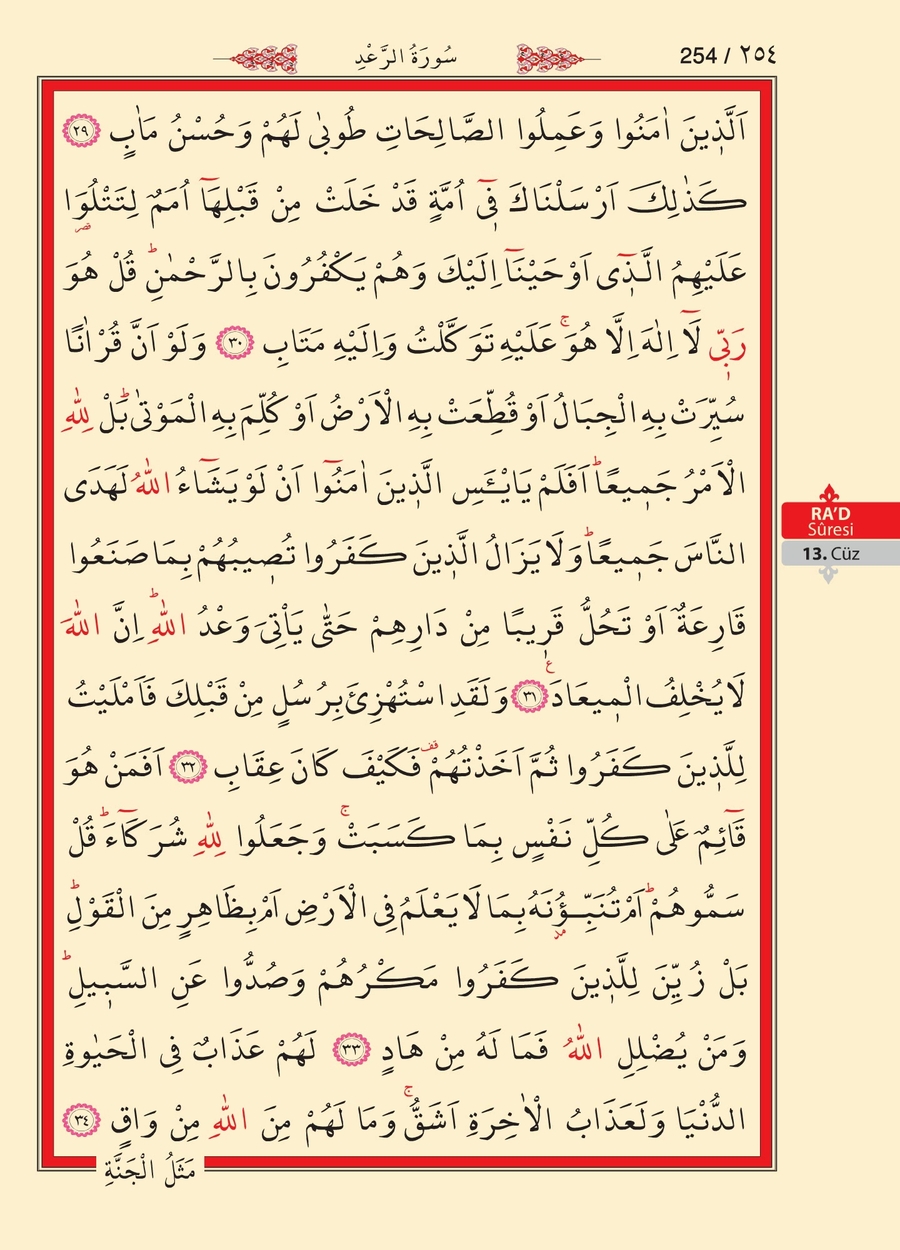 سُورَةُ الرَّعْدِ
254 / ٢٥٤
اَلَّذ۪ينَ اٰمَنُوا وَعَمِلُوا الصَّالِحَاتِ طُوبٰى لَهُمْ وَحُسْنُ مَاٰبٍ ﴿٢٩﴾
كَذٰلِكَ اَرْسَلْنَاكَ ف۪ٓي اُمَّةٍ قَدْ خَلَتْ مِنْ قَبْلِهَٓا اُمَمٌ لِتَتْلُوَ۬ا
قصر
عَلَيْهِمُ الَّذ۪ٓي اَوْحَيْنَٓا اِلَيْكَ وَهُمْ يَكْفُرُونَ بِالرَّحْمٰنِۜ قُلْ هُوَ
رَبّ۪ي لَٓا اِلٰهَ اِلَّا هُوَۚ عَلَيْهِ تَوَكَّلْتُ وَاِلَيْهِ مَتَابِ ﴿٣٠﴾ وَلَوْ اَنَّ قُرْاٰنًا
سُيِّرَتْ بِهِ الْجِبَالُ اَوْ قُطِّعَتْ بِهِ الْاَرْضُ اَوْ كُلِّمَ بِهِ الْمَوْتٰىۜ بَلْ لِلّٰهِ
الْاَمْرُ جَم۪يعًاۜ اَفَلَمْ يَايْـَٔسِ الَّذ۪ينَ اٰمَنُٓوا اَنْ لَوْ يَشَٓاءُ اللّٰهُ لَهَدَى
النَّاسَ جَم۪يعًاۜ وَلَا يَزَالُ الَّذ۪ينَ كَفَرُوا تُص۪يبُهُمْ بِمَا صَنَعُوا
قَارِعَةٌ اَوْ تَحُلُّ قَر۪يبًا مِنْ دَارِهِمْ حَتّٰى يَأْتِيَ وَعْدُ اللّٰهِۜ اِنَّ اللّٰهَ
لَا يُخْلِفُ الْم۪يعَادَ۟ ﴿٣١﴾ وَلَقَدِ اسْتُهْزِئَ بِرُسُلٍ مِنْ قَبْلِكَ فَاَمْلَيْتُ
لِلَّذ۪ينَ كَفَرُوا ثُمَّ اَخَذْتُهُمْ۠ فَكَيْفَ كَانَ عِقَابِ ﴿٣٢﴾ اَفَمَنْ هُوَ
قَٓائِمٌ عَلٰى كُلِّ نَفْسٍ بِمَا كَسَبَتْۚ وَجَعَلُوا لِلّٰهِ شُرَكَٓاءَۜ قُلْ
سَمُّوهُمْۜ اَمْ تُنَبِّـؤُ۫نَهُ بِمَا لَا يَعْلَمُ فِي الْاَرْضِ اَمْ بِظَاهِرٍ مِنَ الْقَوْلِۜ
بَلْ زُيِّنَ لِلَّذ۪ينَ كَفَرُوا مَكْرُهُمْ وَصُدُّوا عَنِ السَّب۪يلِۜ
وَمَنْ يُضْلِلِ اللّٰهُ فَمَا لَهُ مِنْ هَادٍ ﴿٣٣﴾ لَهُمْ عَذَابٌ فِي الْحَيٰوةِ
الدُّنْيَا وَلَعَذَابُ الْاٰخِرَةِ اَشَقُّۚ وَمَا لَهُمْ مِنَ اللّٰهِ مِنْ وَاقٍ ﴿٣٤﴾
مَثَلُ الْجَنَّةِ
RA'D
Sûresi
13. Cüz